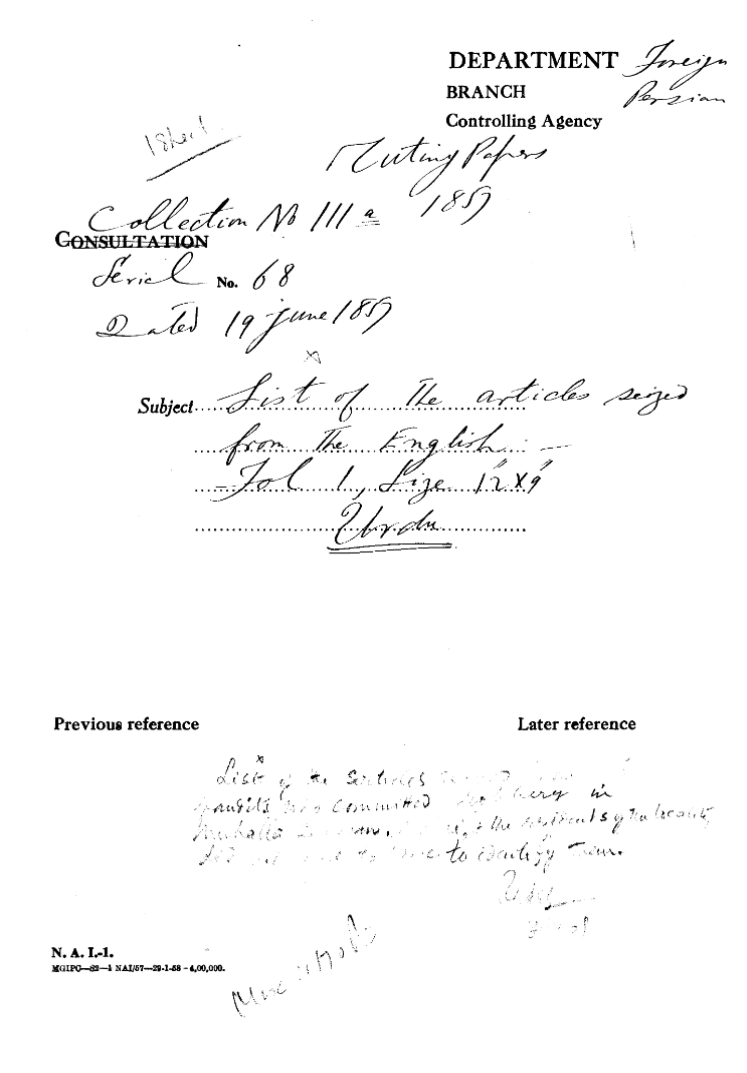 DEPARTMENT Foreign
BRANCH Persian
Controlling Agency
1 Sheet
Mutiny Papers
Collection No 111 a 1857
CONSULTATION
Serial No. 68
Dated 19 June 1857
x
Subject List of the articles seized
from the English
Fol 1, Size 12"X9"
Urdu
Previous reference Later reference
x
List of the articles
committed in
Muhalla & the residents of the locality
to identify them.
N. A. I.-1.
MGIPC—S2—1 NAI/57—29-1-58 - 4,00,000.